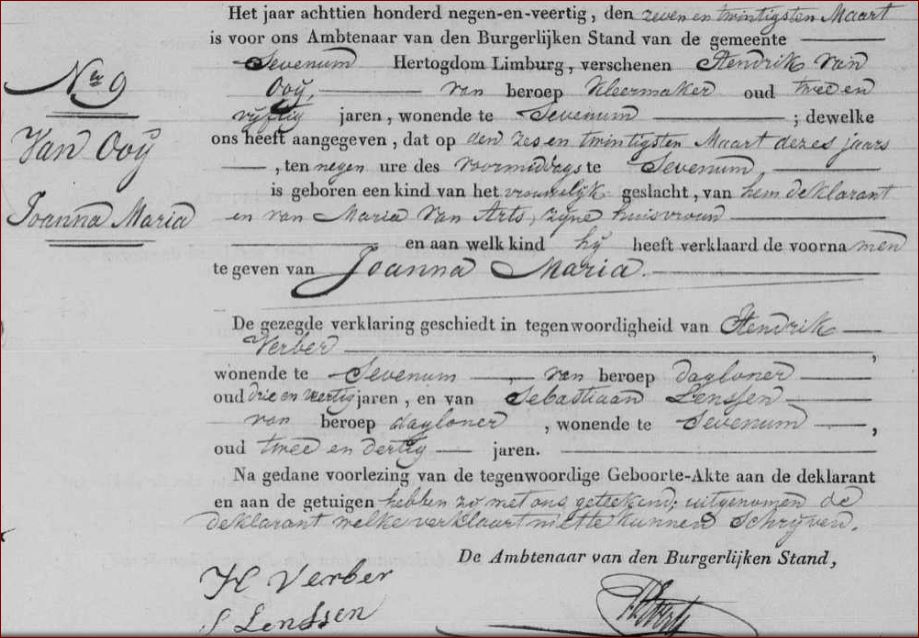 No 9
Van Ooÿ
Joanna Maria
Het jaar achttien honderd negen-en-veertig, den zeven en twintigsten Maart
is voor ons Ambtenaar van den Burgerlijken Stand van de gemeente
Sevenum Hertogdom Limburg, verschenen Hendrik van
Ooÿ, van beroep kleermaker oud twee en
vÿftig jaren, wonende te Sevenum ; dewelke
ons heeft aangegeven, dat op den zes en twintigsten Maart dezes jaars
, ten negen ure des voormiddags te Sevenum
is geboren een kind van het vrouwelÿk geslacht, van hem deklarant
en van Maria van Arts, zÿne huisvrouw
en aan welk kind hÿ heeft verklaard de voornamen
te geven van Joanna Maria.
De gezegde verklaring geschiedt in tegenwoordigheid van Hendrik
Verber ,
wonende te Sevenum , van beroep dagloner
oud drie en veertig jaren, en van Sebastiaan Lenssen
van beroep dagloner , wonende te Sevenum ,
oud twee en dertig jaren.
Na gedane voorlezing van de tegenwoordige Geboorte-Akte aan de deklarant
en aan de getuigen hebben zo met ons geteekend, uitgenomen de
deklarant welke verklaart niet te kunnen schrÿven.
De Ambtenaar van den Burgerlijken Stand,
H Verber
S Lenssen